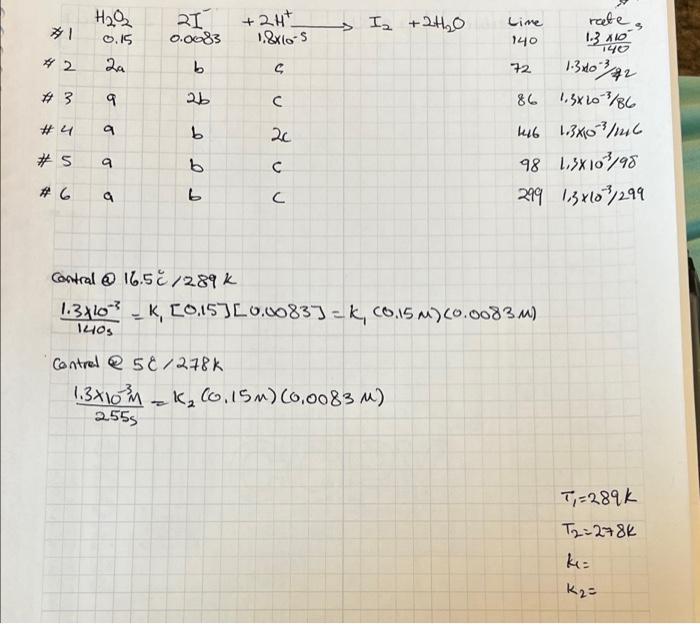 H₂O₂ 2I⁻ + 2H⁺ → I₂ + 2H₂O time rate
#1 0.15 0.0083 1.8x10⁻⁵ 140 1.3x10⁻³/140
#2 2a b c 72 1.3x10⁻³/72
#3 a 2b c 86 1.3x10⁻³/86
#4 a b 2c 146 1.3x10⁻³/146
#5 a b c 98 1.3x10⁻³/98
#6 a b c 299 1.3x10⁻³/299
Control @ 16.5°C / 289 K
1.3x10⁻³/140s = K₁ [0.15][0.0083] = K₁ (0.15 M)(0.0083 M)
Control @ 5°C / 278K
1.3x10⁻³M/255s = K₂ (0.15M)(0.0083 M)
T₁=289K
T₂=278K
k₁=
K₂=